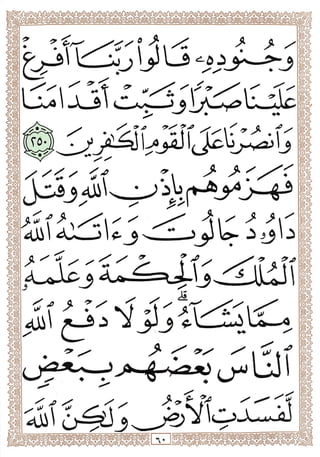 وَجُنُودِهِۦ قَالُوا۟ رَبَّنَآ أَفْرِغْ
عَلَيْنَا صَبْرًا وَثَبِّتْ أَقْدَامَنَا
وَٱنصُرْنَا عَلَى ٱلْقَوْمِ ٱلْكَـٰفِرِينَ ٢٥٠
فَهَزَمُوهُم بِإِذْنِ ٱللَّهِ وَقَتَلَ
دَاوُۥدُ جَالُوتَ وَءَاتَىٰهُ ٱللَّهُ
ٱلْمُلْكَ وَٱلْحِكْمَةَ وَعَلَّمَهُۥ
مِمَّا يَشَآءُ ۗ وَلَوْلَا دَفْعُ ٱللَّهِ
ٱلنَّاسَ بَعْضَهُم بِبَعْضٍ
لَّفَسَدَتِ ٱلْأَرْضُ وَلَـٰكِنَّ ٱللَّهَ
٦٠